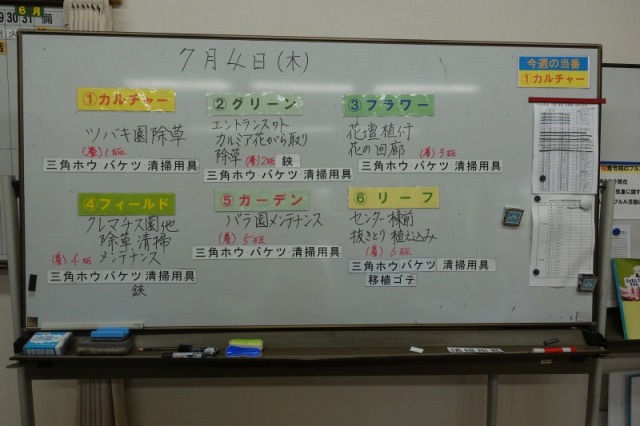 6月
7月4日(木)
今週の当番
①カルチャー
①カルチャー
ツバキ園除草
(巻)1班
三角ホウ バケツ 清掃用具
②グリーン
エントランスカット
カルミア花がら取り
除草 (巻)2班 鋏
三角ホウ バケツ 清掃用具
③フラワー
花壇植付
花の回廊
(巻)3班
三角ホウ バケツ 清掃用具
④フィールド
クレマチス園他
除草清掃
メンテナンス
(巻)4班
三角ホウ バケツ 清掃用具
鋏
⑤ガーデン
バラ園メンテナンス
(巻)5班
三角ホウ バケツ 清掃用具
⑥リーフ
センター棟前
抜きとり 植え込み
(巻)6班
三角ホウ バケツ 清掃用具
移植ゴテ